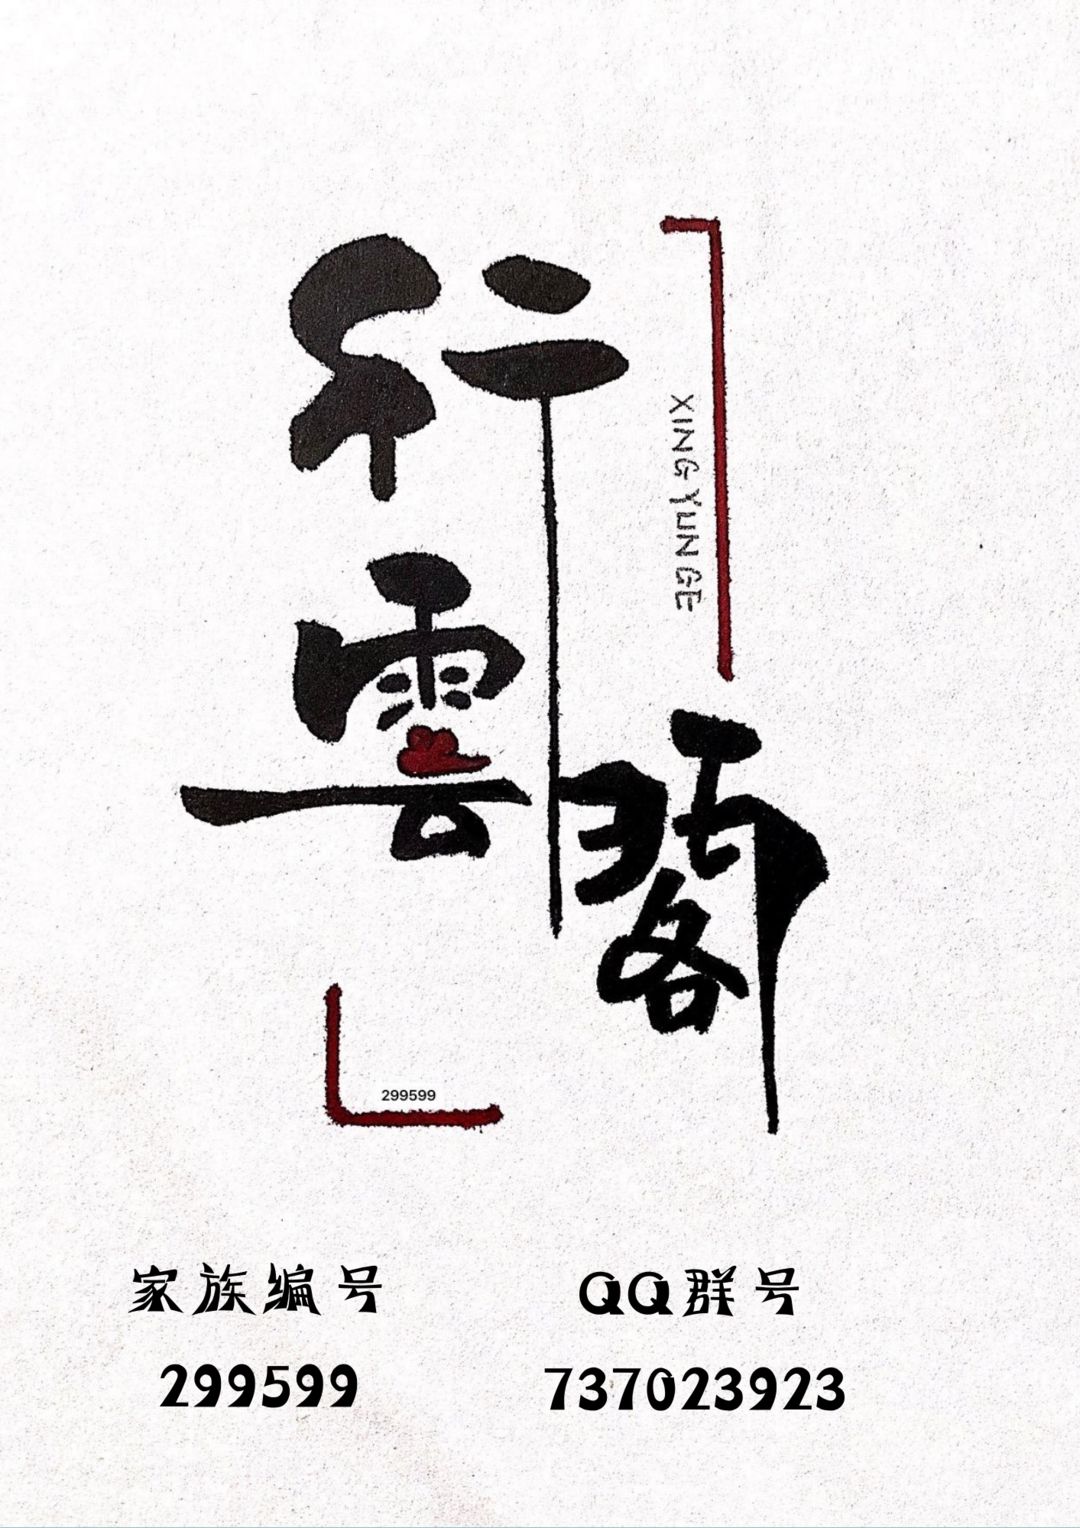 行雲閣
XING YUN GE
299599
家族编号
299599
QQ群号
737023923